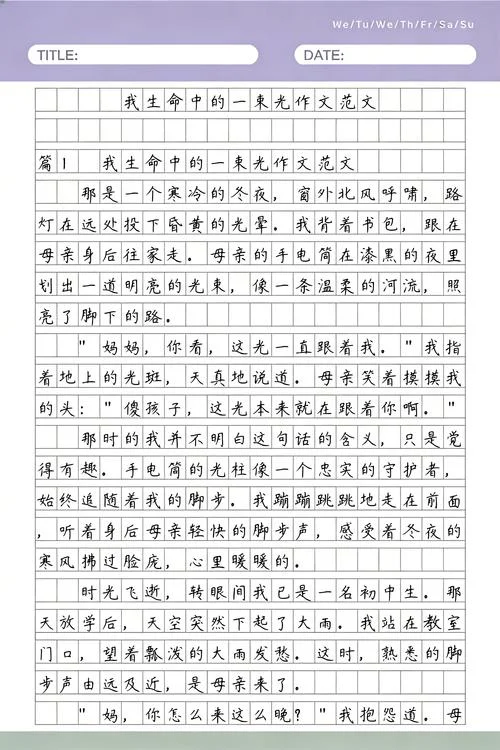 We/Tu/We/Th/Fr/Sa/Su
TITLE:
DATE:
我生命中的一束光作文范文
篇1 我生命中的一束光作文范文
那是一个寒冷的冬夜，窗外北风呼啸，路
灯在远处投下昏黄的光晕。我背着书包，跟在
母亲身后往家走。母亲的手电筒在漆黑的夜里
划出一道明亮的光束，像一条温柔的河流，照
亮了脚下的路。
"妈妈，你看，这光一直跟着我。"我指
着地上的光斑，天真地说道。母亲笑着摸摸我
的头："傻孩子，这光本来就在跟着你啊。"
那时的我并不明白这句话的含义，只是觉
得有趣。手电筒的光柱像一个忠实的守护者，
始终追随着我的脚步。我蹦蹦跳跳地走在前面
，听着身后母亲轻快的脚步声，感受着冬夜的
寒风拂过脸庞，心里暖暖的。
时光飞逝，转眼间我已是一名初中生。那
天放学后，天空突然下起了大雨。我站在教室
门口，望着瓢泼的大雨发愁。这时，熟悉的脚
步声由远及近，是母亲来了。
"妈，你怎么来这么晚？"我抱怨道。母